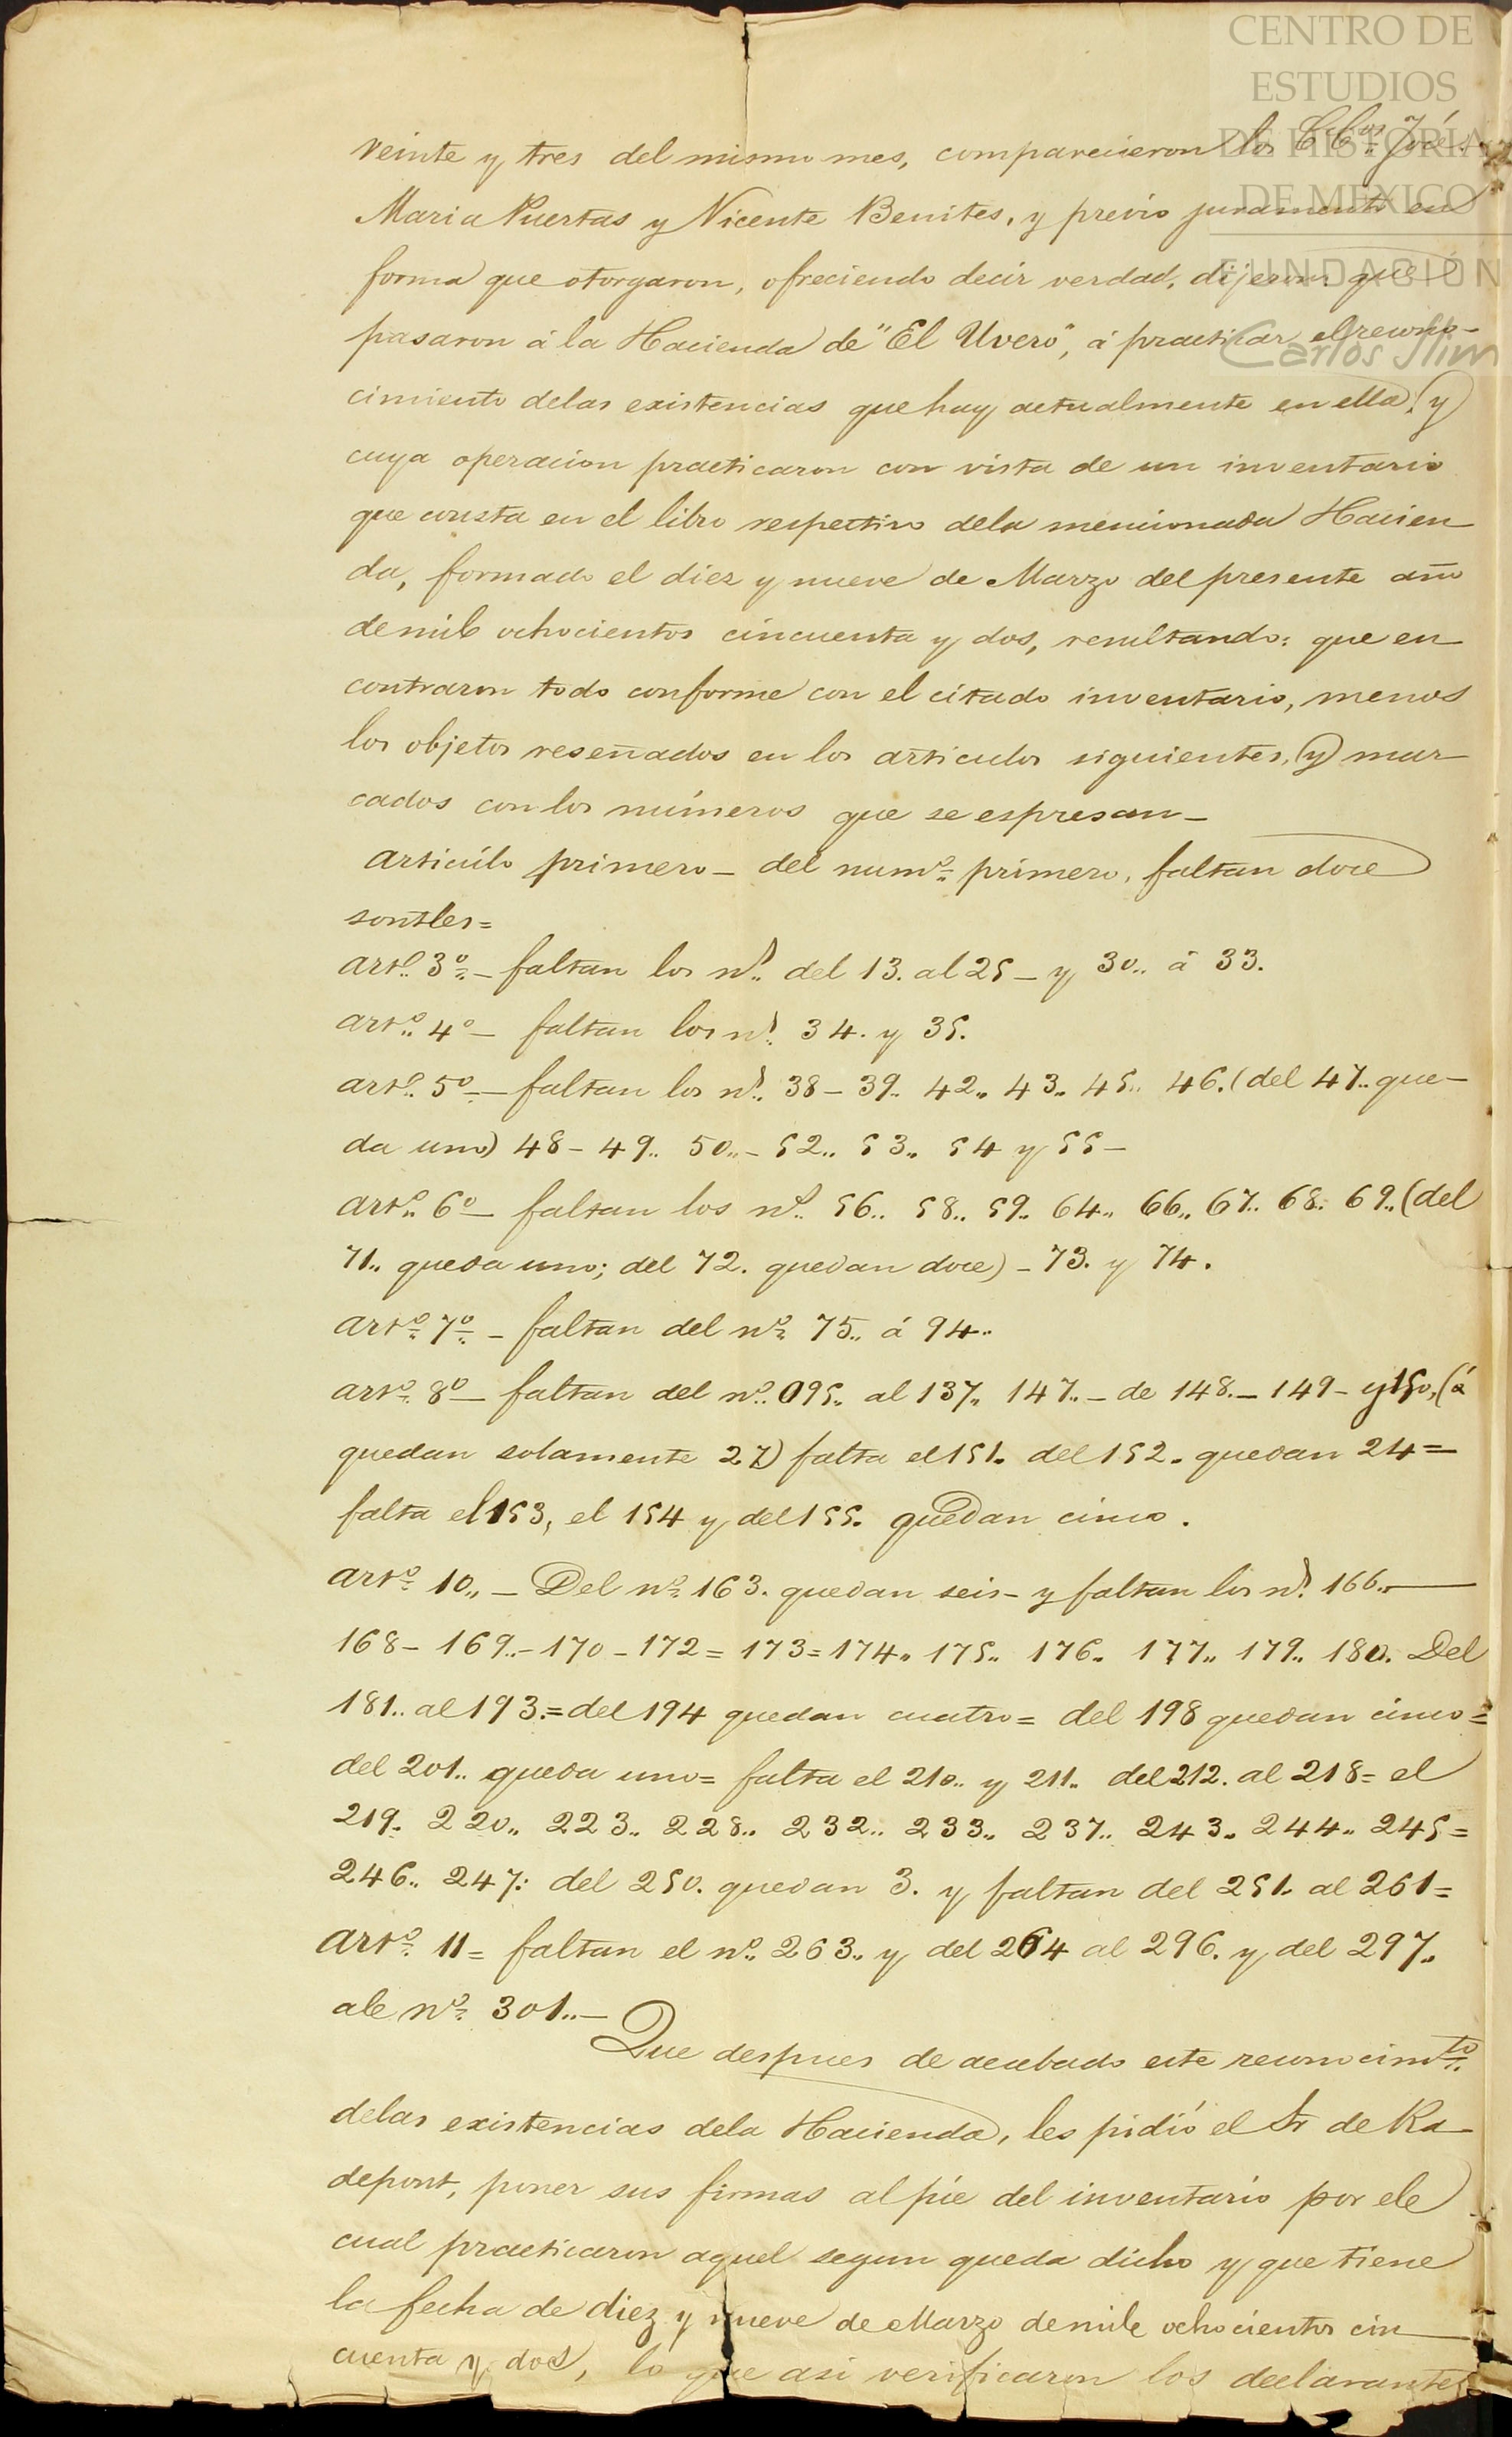 CENTRO DE
ESTUDIOS
DE HISTORIA
DE MEXICO
FUNDACIÓN
Carlos Slim
veinte y tres del mismo mes, comparecieron los CC.nos José
Maria Puertas y Vicente Benites, y previo juramento en
forma que otorgaron, ofreciendo decir verdad, dijeron: que
pasaron á la Hacienda de "El Uvero", á practicar el recono-
cimiento delas existencias que hay actualmente en ella, y
cuya operacion practicaron con vista de un inventario
que consta en el libro respectivo dela mencionada Hacien-
da, formado el diez y nueve de Marzo del presente año
demil ochocientos cincuenta y dos, resultando: que en-
contraron todo conforme con el citado inventario, menos
los objetos reseñados en los articulos siguientes, y mar-
cados con los números que se espresan_
articúlo primero_ del numº primero, faltan doce
sontles=
artº. 3º_ faltan los nº.. del 13. al 25_ y 30.. á 33.
artº.. 4º_ faltan los nº. 34. y 35.
artº. 5º_ faltan los nº.. 38_39.. 42.. 43.. 45.. 46. (del 47.. que-
da uno) 48_49.. 50.._52.. 53.. 54 y 55_
artº.. 6º_ faltan los nº.. 56.. 58.. 59.. 64.. 66.. 67.. 68.. 69.. (del
71.. queda uno; del 72. quedan doce)_73. y 74.
artº. 7º_ faltan del nº 75.. á 94..
artº. 8º_ faltan del nº.. 095.. al 137.. 147.._ de 148._149_ y 150, (á
quedan solamente 27) falta el 151.. del 152. quedan 24=
falta el 153, el 154 y del 155. quedan cinco.
artº. 10.._ Del nº 163. quedan seis_ y faltan los nº. 166.._
168_169.._170_172=173=174.. 175.. 176.. 177.. 179.. 180. Del
181.. al 193.=del 194 quedan cuatro= del 198 quedan cinco=
del 201.. queda uno= falta el 210.. y 211.. del 212. al 218= el
219. 220.. 223.. 228.. 232.. 233.. 237.. 243.. 244.. 245=
246.. 247: del 250. quedan 3. y faltan del 251. al 261=
artº. 11= faltan el nº.. 263.. y del 264 al 296. y del 297..
ale nº 301.._
Que despues de acabado este reconocimto
delas existencias dela Hacienda, les pidió el Sr de Ra-
depont, poner sus firmas al pie del inventario por ele
cual practicaron aquel segun queda dicho y que tiene
la fecha de diez y nueve de Marzo demile ochocientos cin-
cuenta y dos, lo que asi verificaron los declarantes